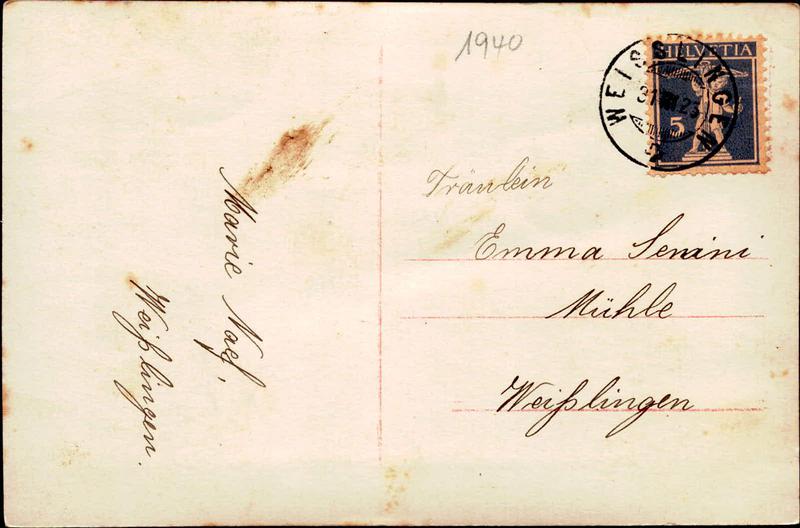 1940
HELVETIA
5
WEISSLINGEN
Fräulein
Emma
Mühle
Weißlingen
Marie Naef,
Weißlingen.